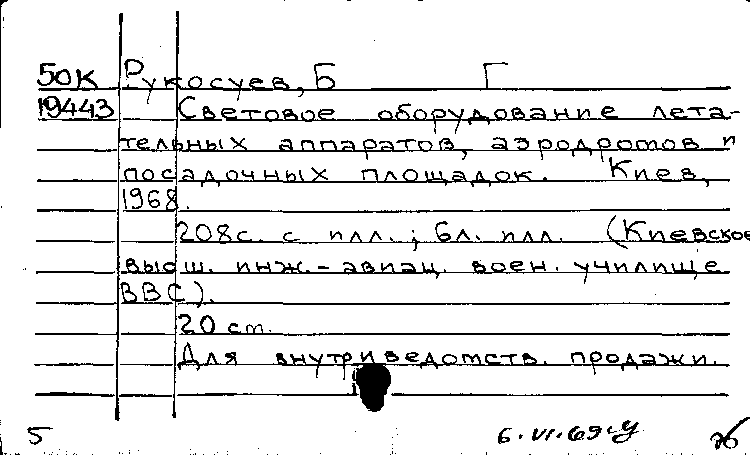 50К Рукосуев, Б Г
19443 Световое оборудование лета-
тельных аппаратов, аэродромов и
посадочных площадок. Киев,
1968.
208с. с илл.; 6л. илл. (Киевское
высш. инж.-авиац. воен. училище
ВВС).
20 cm.
Для внутриведомств. продажи.
5 6.VI.69